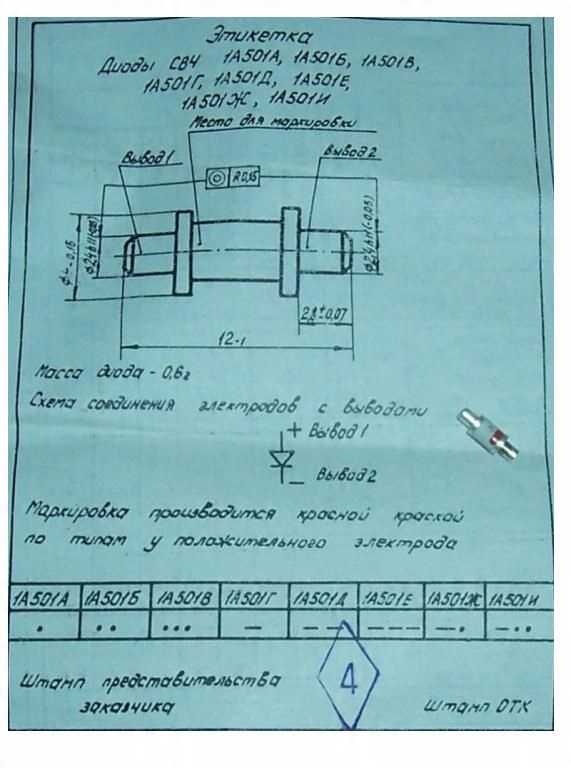 Этикетка
Диоды СВЧ 1А501А, 1А501Б, 1А501В,
1А501Г, 1А501Д, 1А501Е,
1А501Ж, 1А501И
Место для маркировки
Вывод 1
Вывод 2
◎ R0,15
12-1
2,8±0,07
Масса диода - 0,6г
Схема соединения электродов с выводами
+ Вывод 1
- Вывод 2
Маркировка производится красной краской
по типам у положительного электрода
1А501А 1А501Б 1А501В 1А501Г 1А501Д 1А501Е 1А501Ж 1А501И
• •• ••• — — — — — — —• —••
Штамп представительства
заказчика
4
Штамп ОТК